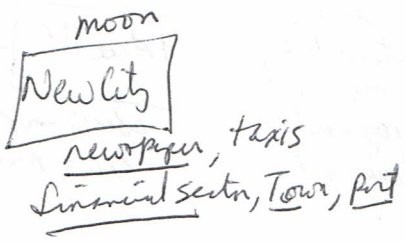 moon
New City
newspaper, taxis
financial sector, Town, port